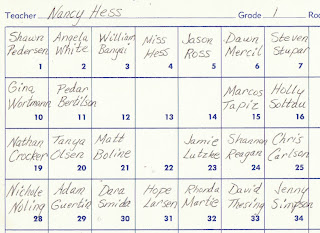 Teacher Nancy Hess Grade 1 Roo
Shawn Angela William Miss Jason Dawn Steven
Pedersen White Bangai Hess Ross Mercil Stupar
1 2 3 4 5 6 7
Gina Pedar Marcus Holly
Wortmann Bertilson Tapiz Solttdu
10 11 12 13 14 15 16
Nathan Tanya Matt Jamie Shannon Chris
Crocker Olsen Boline Lutzke Reagan Carlson
19 20 21 22 23 24 25
Nichole Adam Dara Hope Rhonda David Jenny
Noling Guertin Smida Larsen Martie Thesing Simpson
28 29 30 31 32 33 34